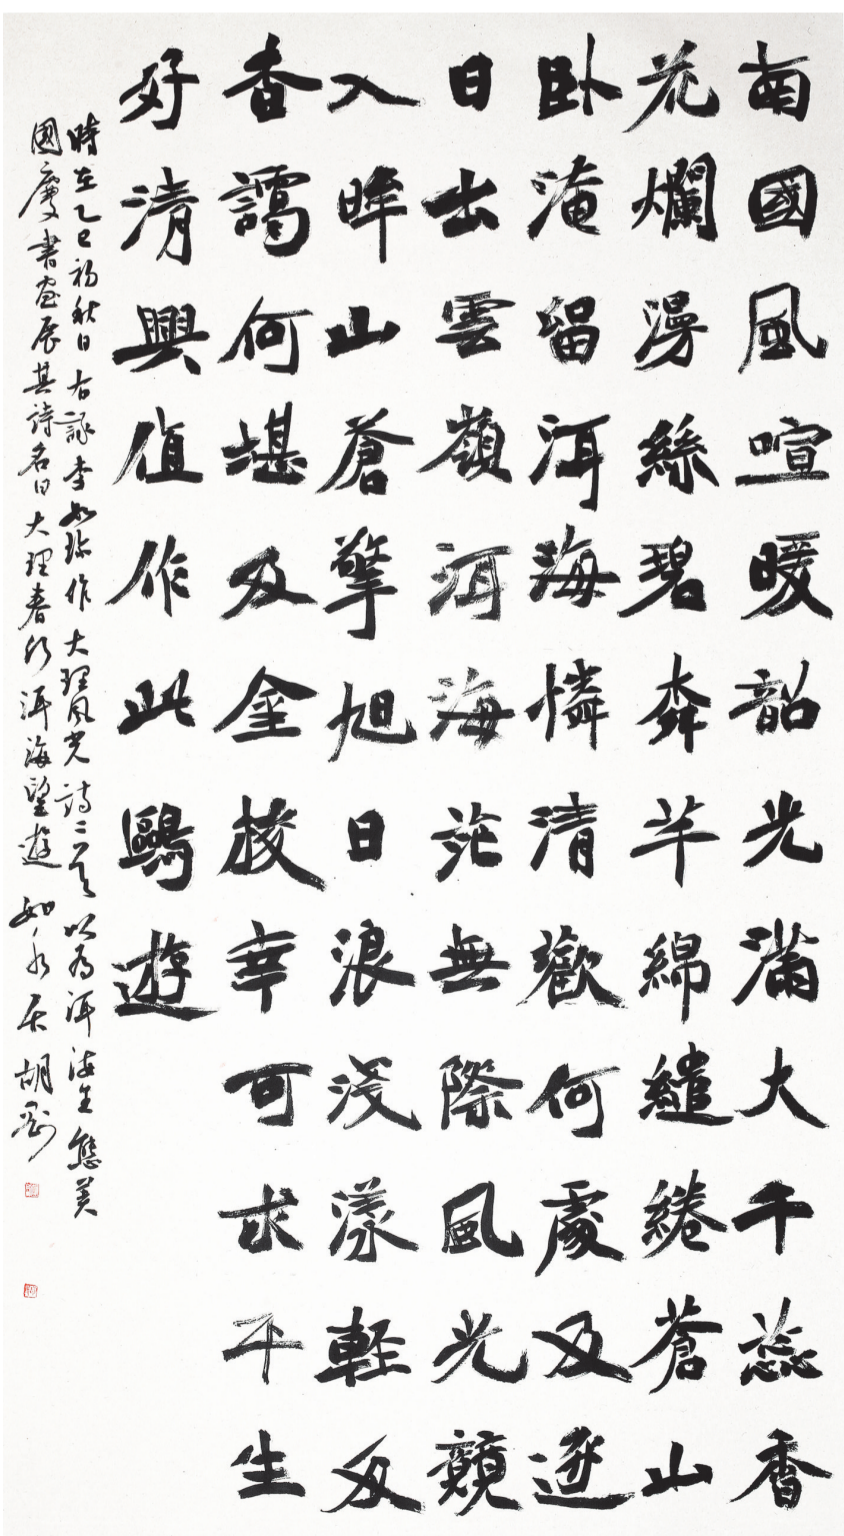 南國風喧暖韶光滿大千蕊香
花爛漫絲碧芊綿繾綣蒼山
卧淹留洱海憐清歡何處及
日出雲嶺洱海茫無際風光競
入眸山蒼擎旭日浪淺漾輕
香何堪及金幸可求平生
好清興值作此鷗遊
時在乙巳初秋日右錄李如作大理風光詩二首以為洱海生態美
國慶書畫展其詩名曰大理春行洱海望遊如水居胡